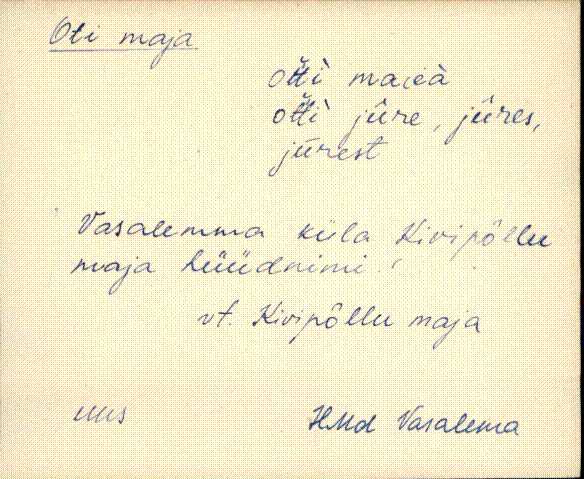 Oti maja
ot̆t̆ì maieà
ot̆t̆ì jûre, jûres,
jûrest
Vasalemma küla Kivipõllu
maja hüüdnimi.
vt. Kivipõllu maja
uus
HMd Vasalema